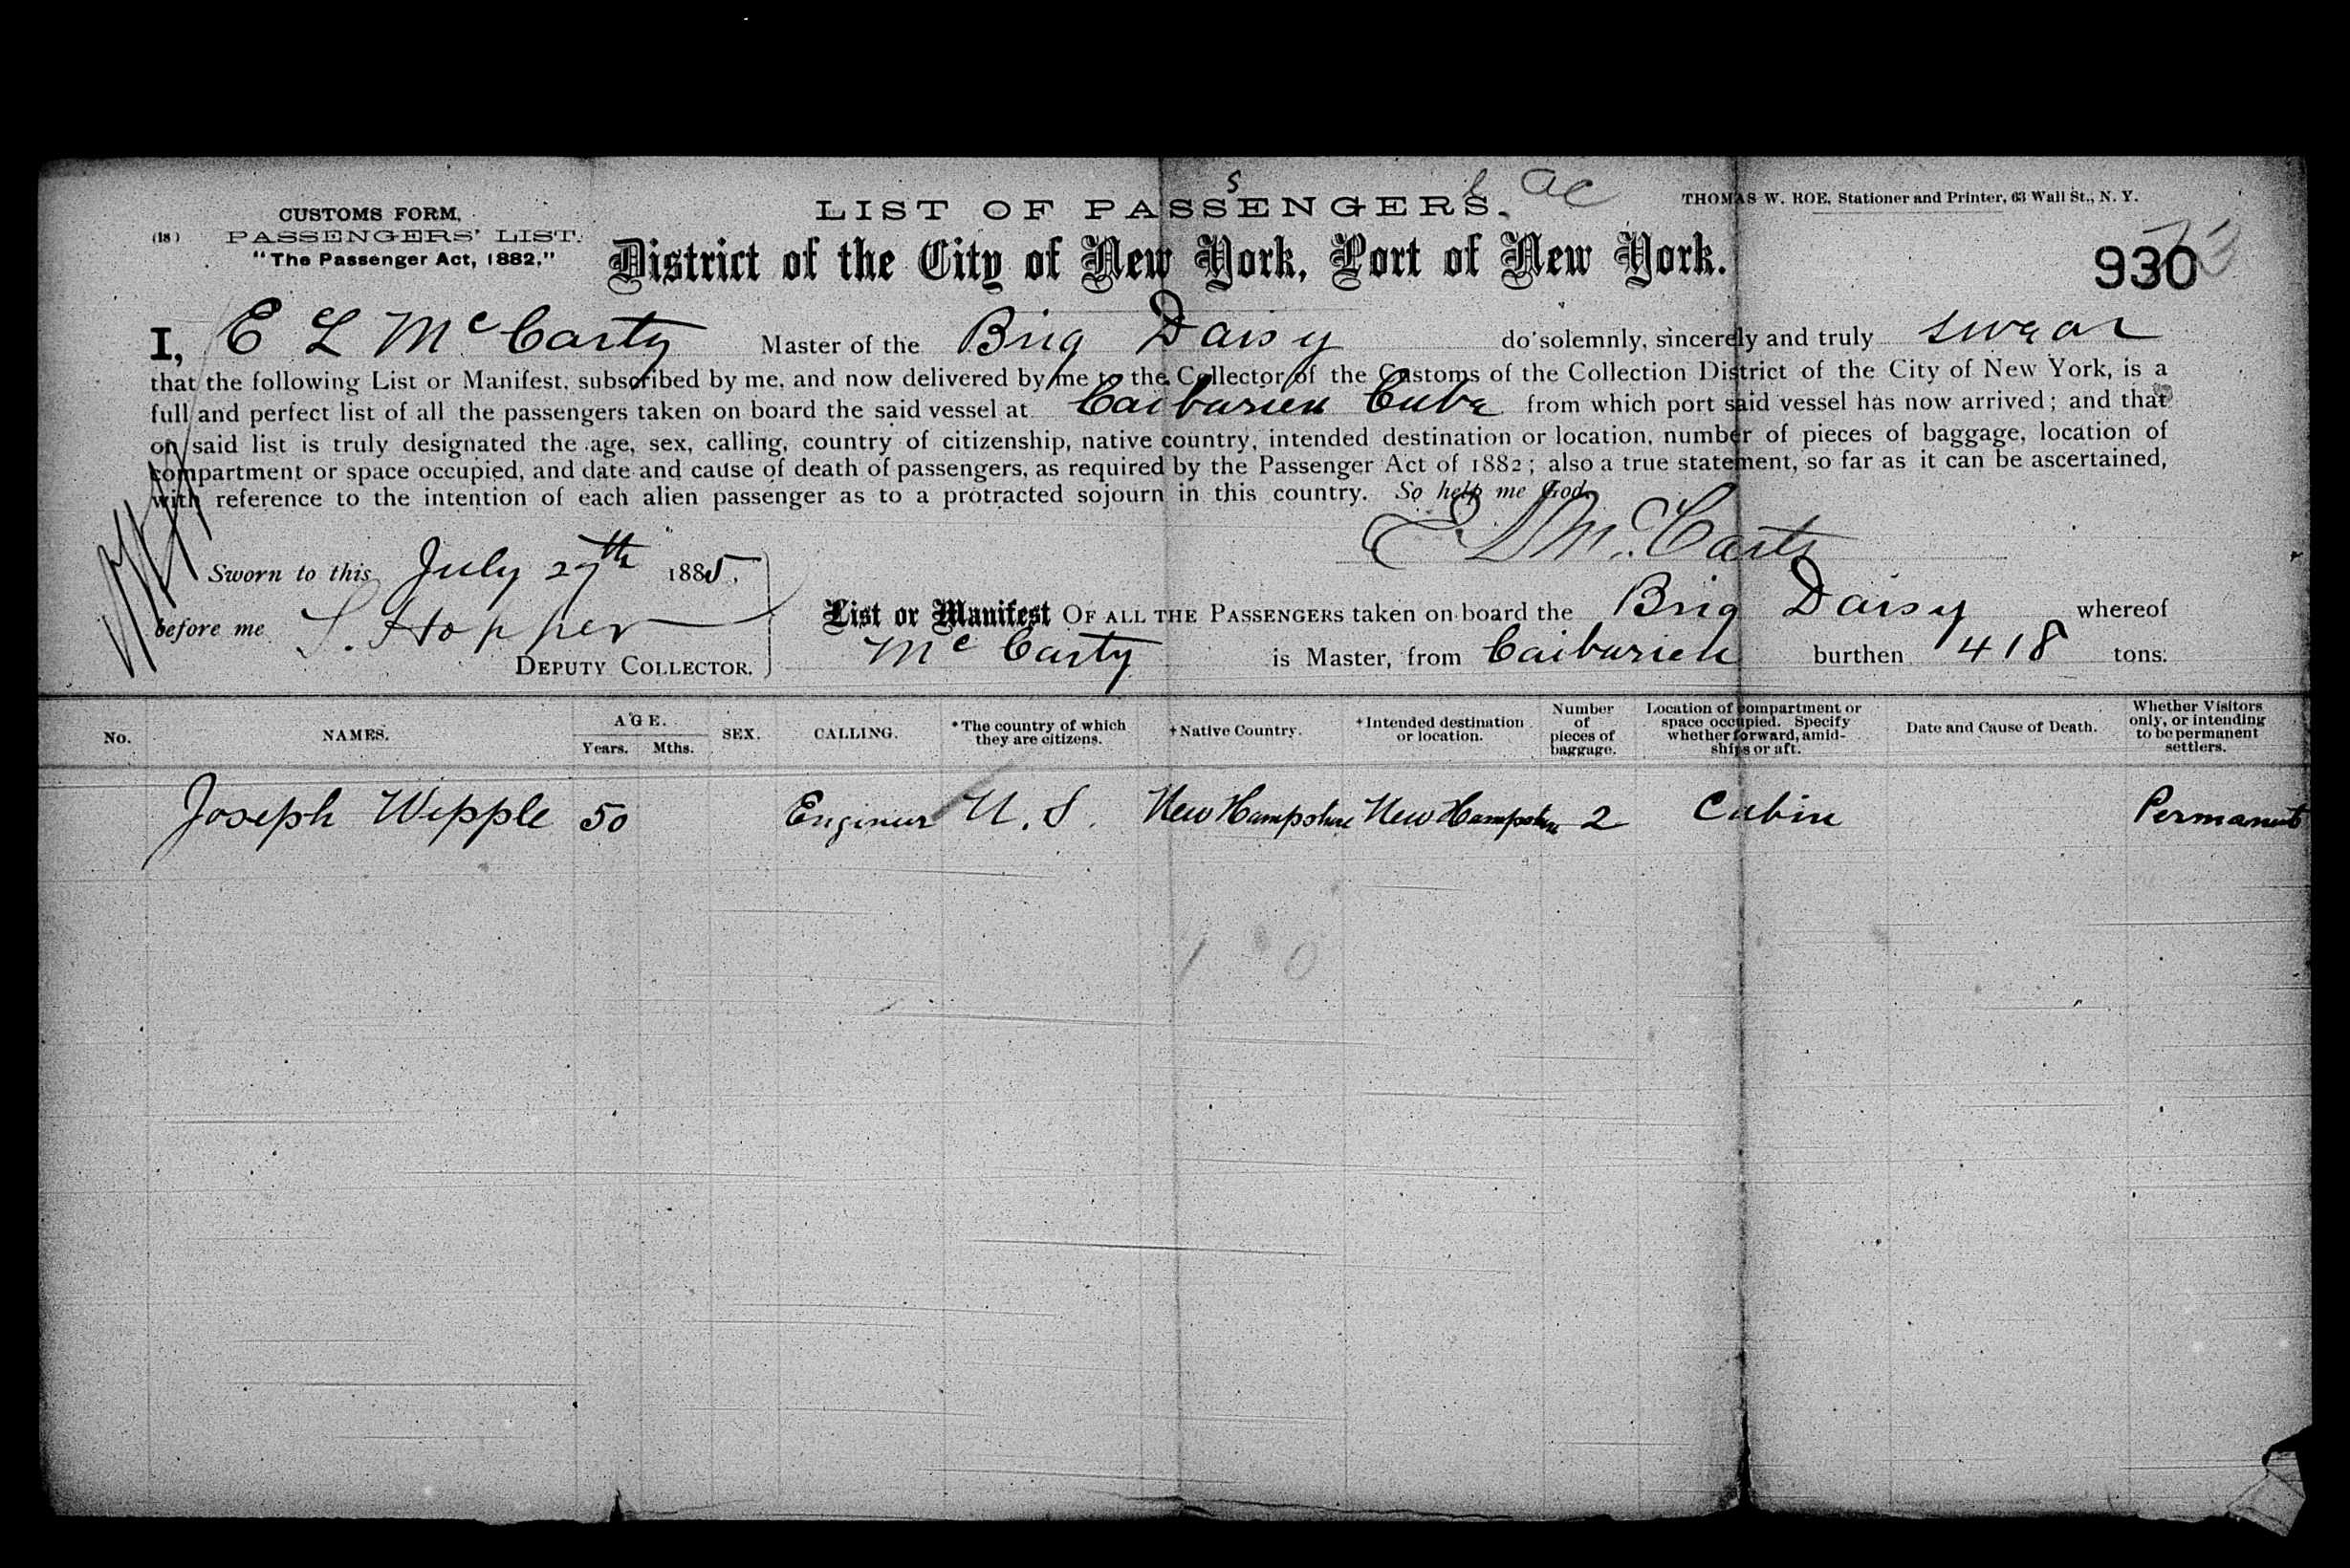 LIST OF PASSENGERS.
ac
THOMAS W. ROE, Stationer and Printer, 63 Wall St., N. Y.
CUSTOMS FORM,
(18) PASSENGERS' LIST.
"The Passenger Act, 1882."
District of the City of New York, Port of New York.
930
I, E L Mc Carty Master of the Brig Daisy do solemnly, sincerely and truly swear
that the following List or Manifest, subscribed by me, and now delivered by me to the Collector of the Customs of the Collection District of the City of New York, is a
full and perfect list of all the passengers taken on board the said vessel at Caibarien Cuba from which port said vessel has now arrived; and that
on said list is truly designated the age, sex, calling, country of citizenship, native country, intended destination or location, number of pieces of baggage, location of
compartment or space occupied, and date and cause of death of passengers, as required by the Passenger Act of 1882; also a true statement, so far as it can be ascertained,
with reference to the intention of each alien passenger as to a protracted sojourn in this country. So help me God.
E L Mc Carty
Sworn to this July 27th 1885.
before me S. Hopper
DEPUTY COLLECTOR.
List or Manifest OF ALL THE PASSENGERS taken on board the Brig Daisy whereof
Mc Carty is Master, from Caibarien burthen 418 tons.
No. NAMES. AGE. Years. Mths. SEX. CALLING. *The country of which they are citizens. †Native Country. †Intended destination or location. Number of pieces of baggage. Location of compartment or space occupied. Specify whether forward, amidships or aft. Date and Cause of Death. Whether Visitors only, or intending to be permanent settlers.
Joseph Wipple 50 Engineer U.S. New Hampshire New Hampshire 2 Cabin Permanent